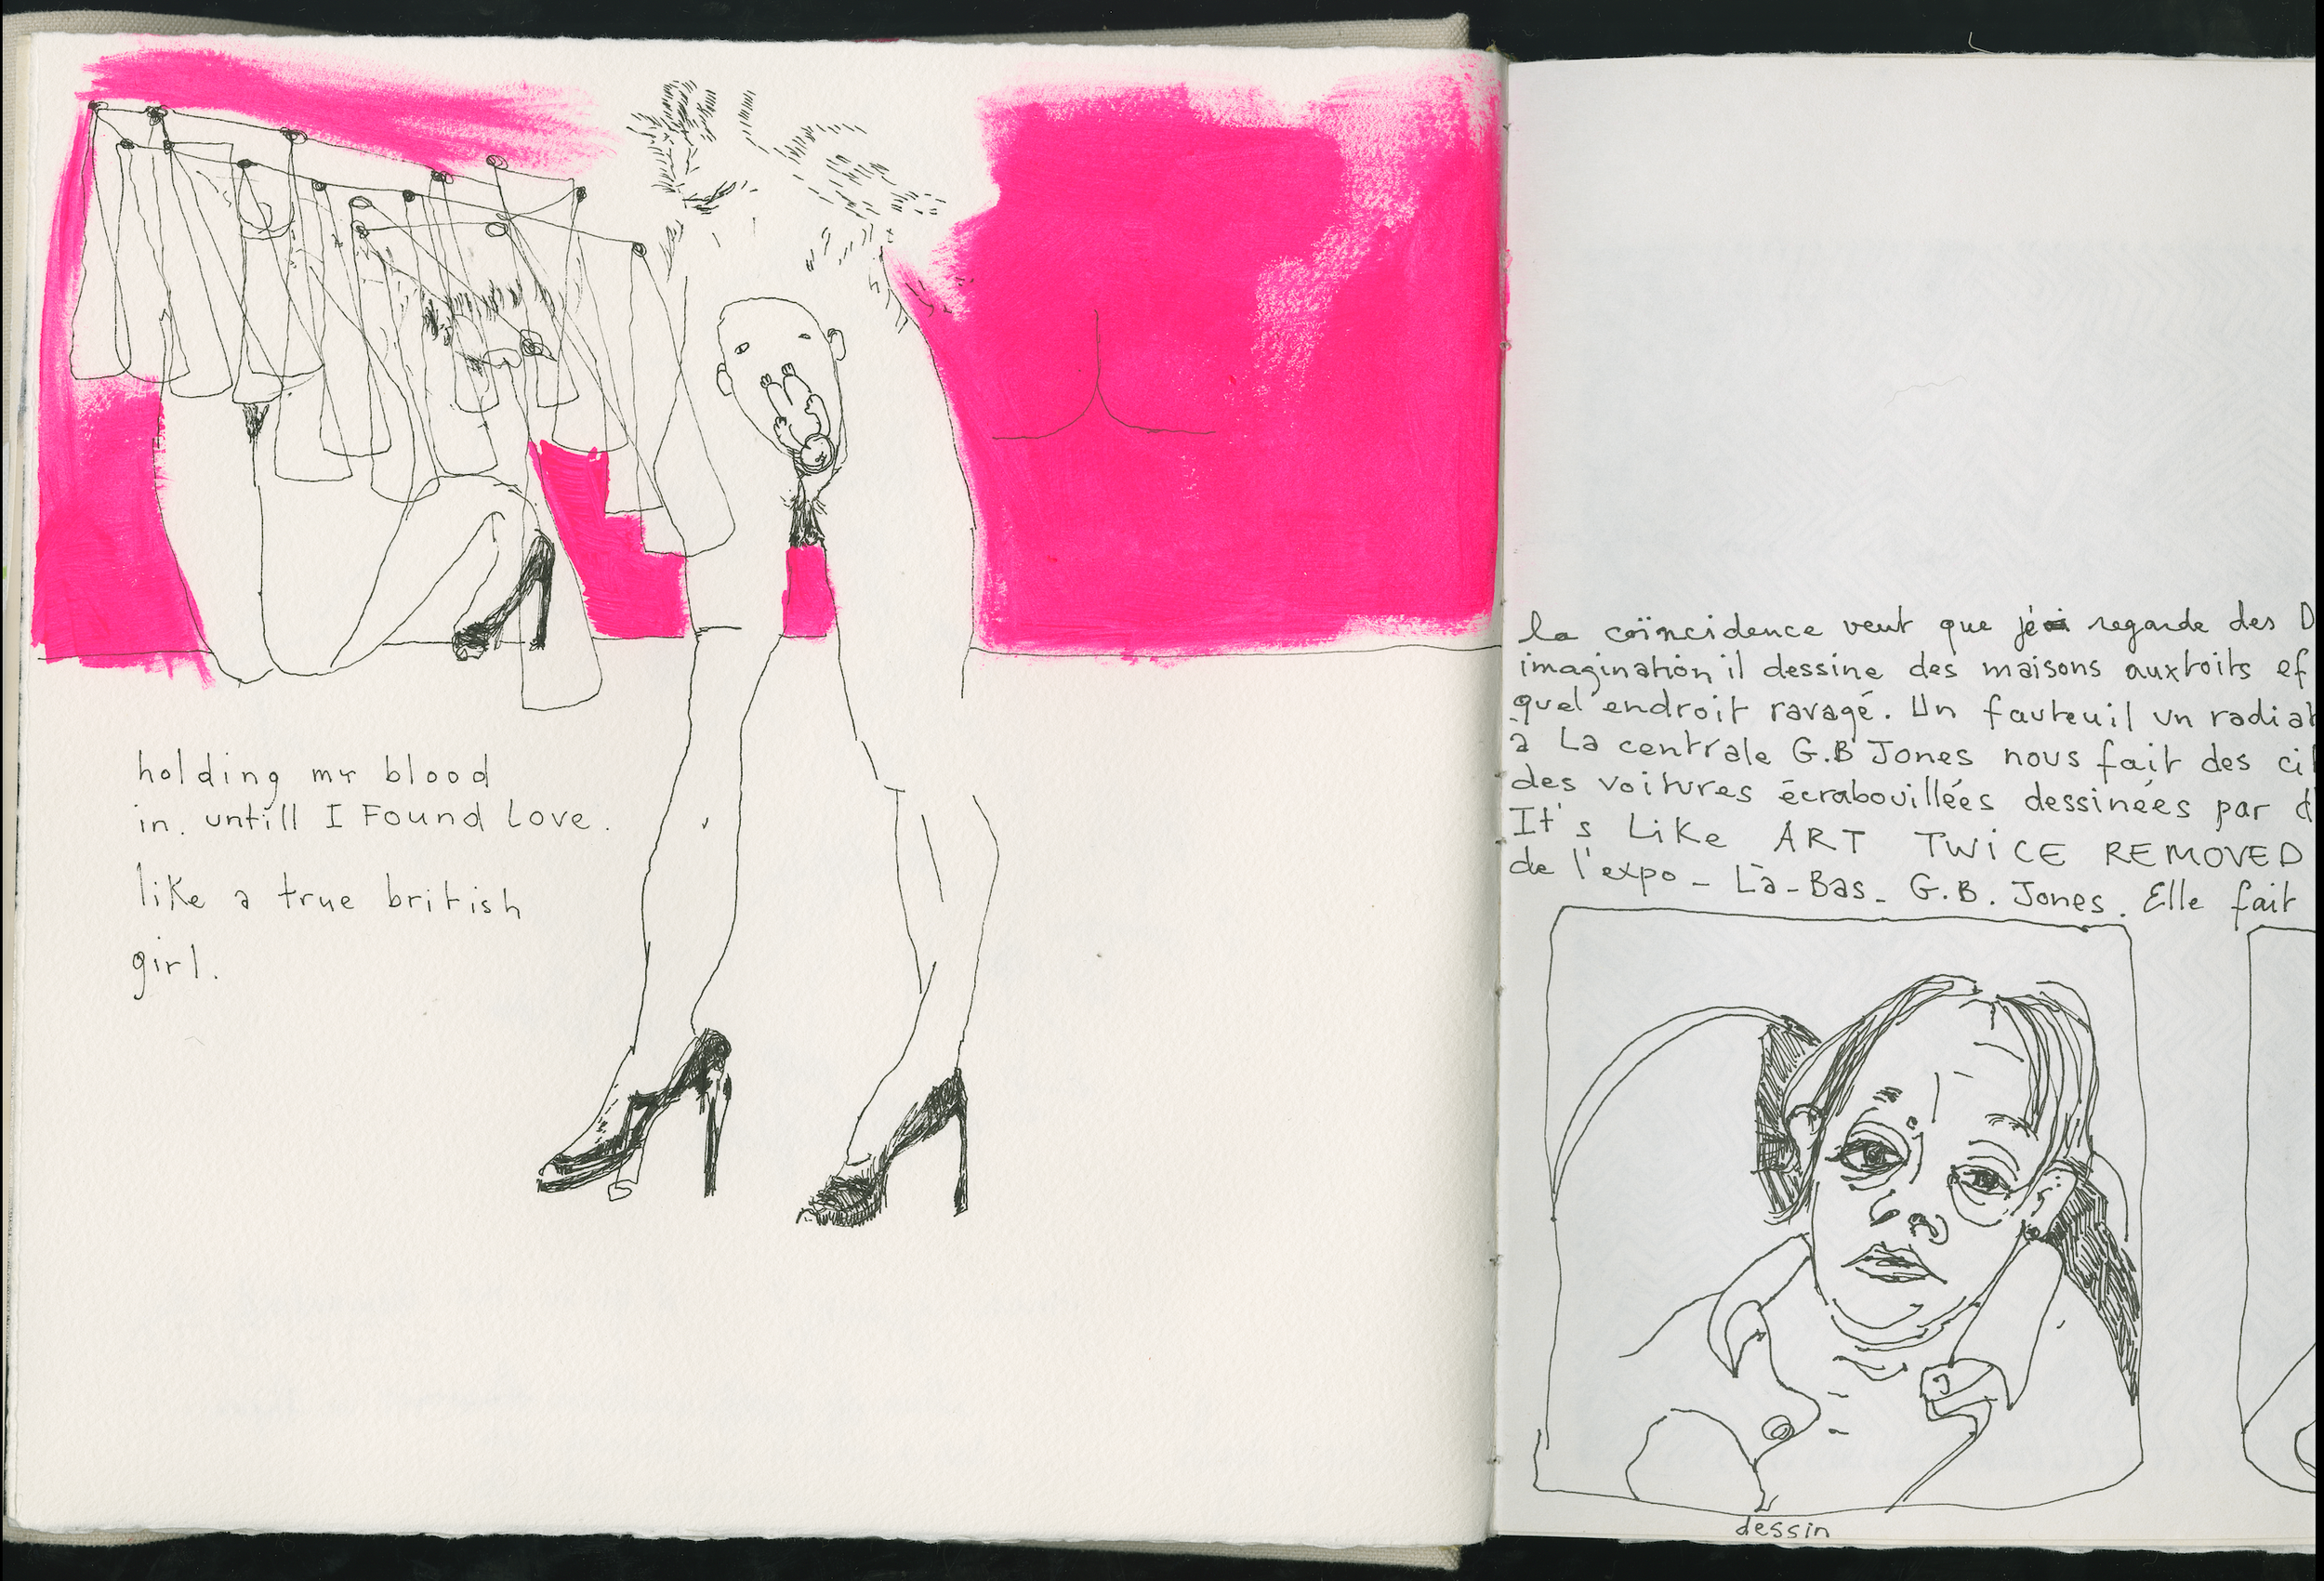 holding my blood
in. untill I Found Love.
like a true british
girl.
la coïncidence veut que je regarde des D
imagination il dessine des maisons aux toits ef
quel endroit ravagé. Un fauteuil un radiat
à La centrale G.B Jones nous fait des ci
des voitures écrabouillées dessinées par d
It's Like ART TWiCE REMOVED
de l'expo - Là-Bas - G.B. Jones. Elle fait
dessin